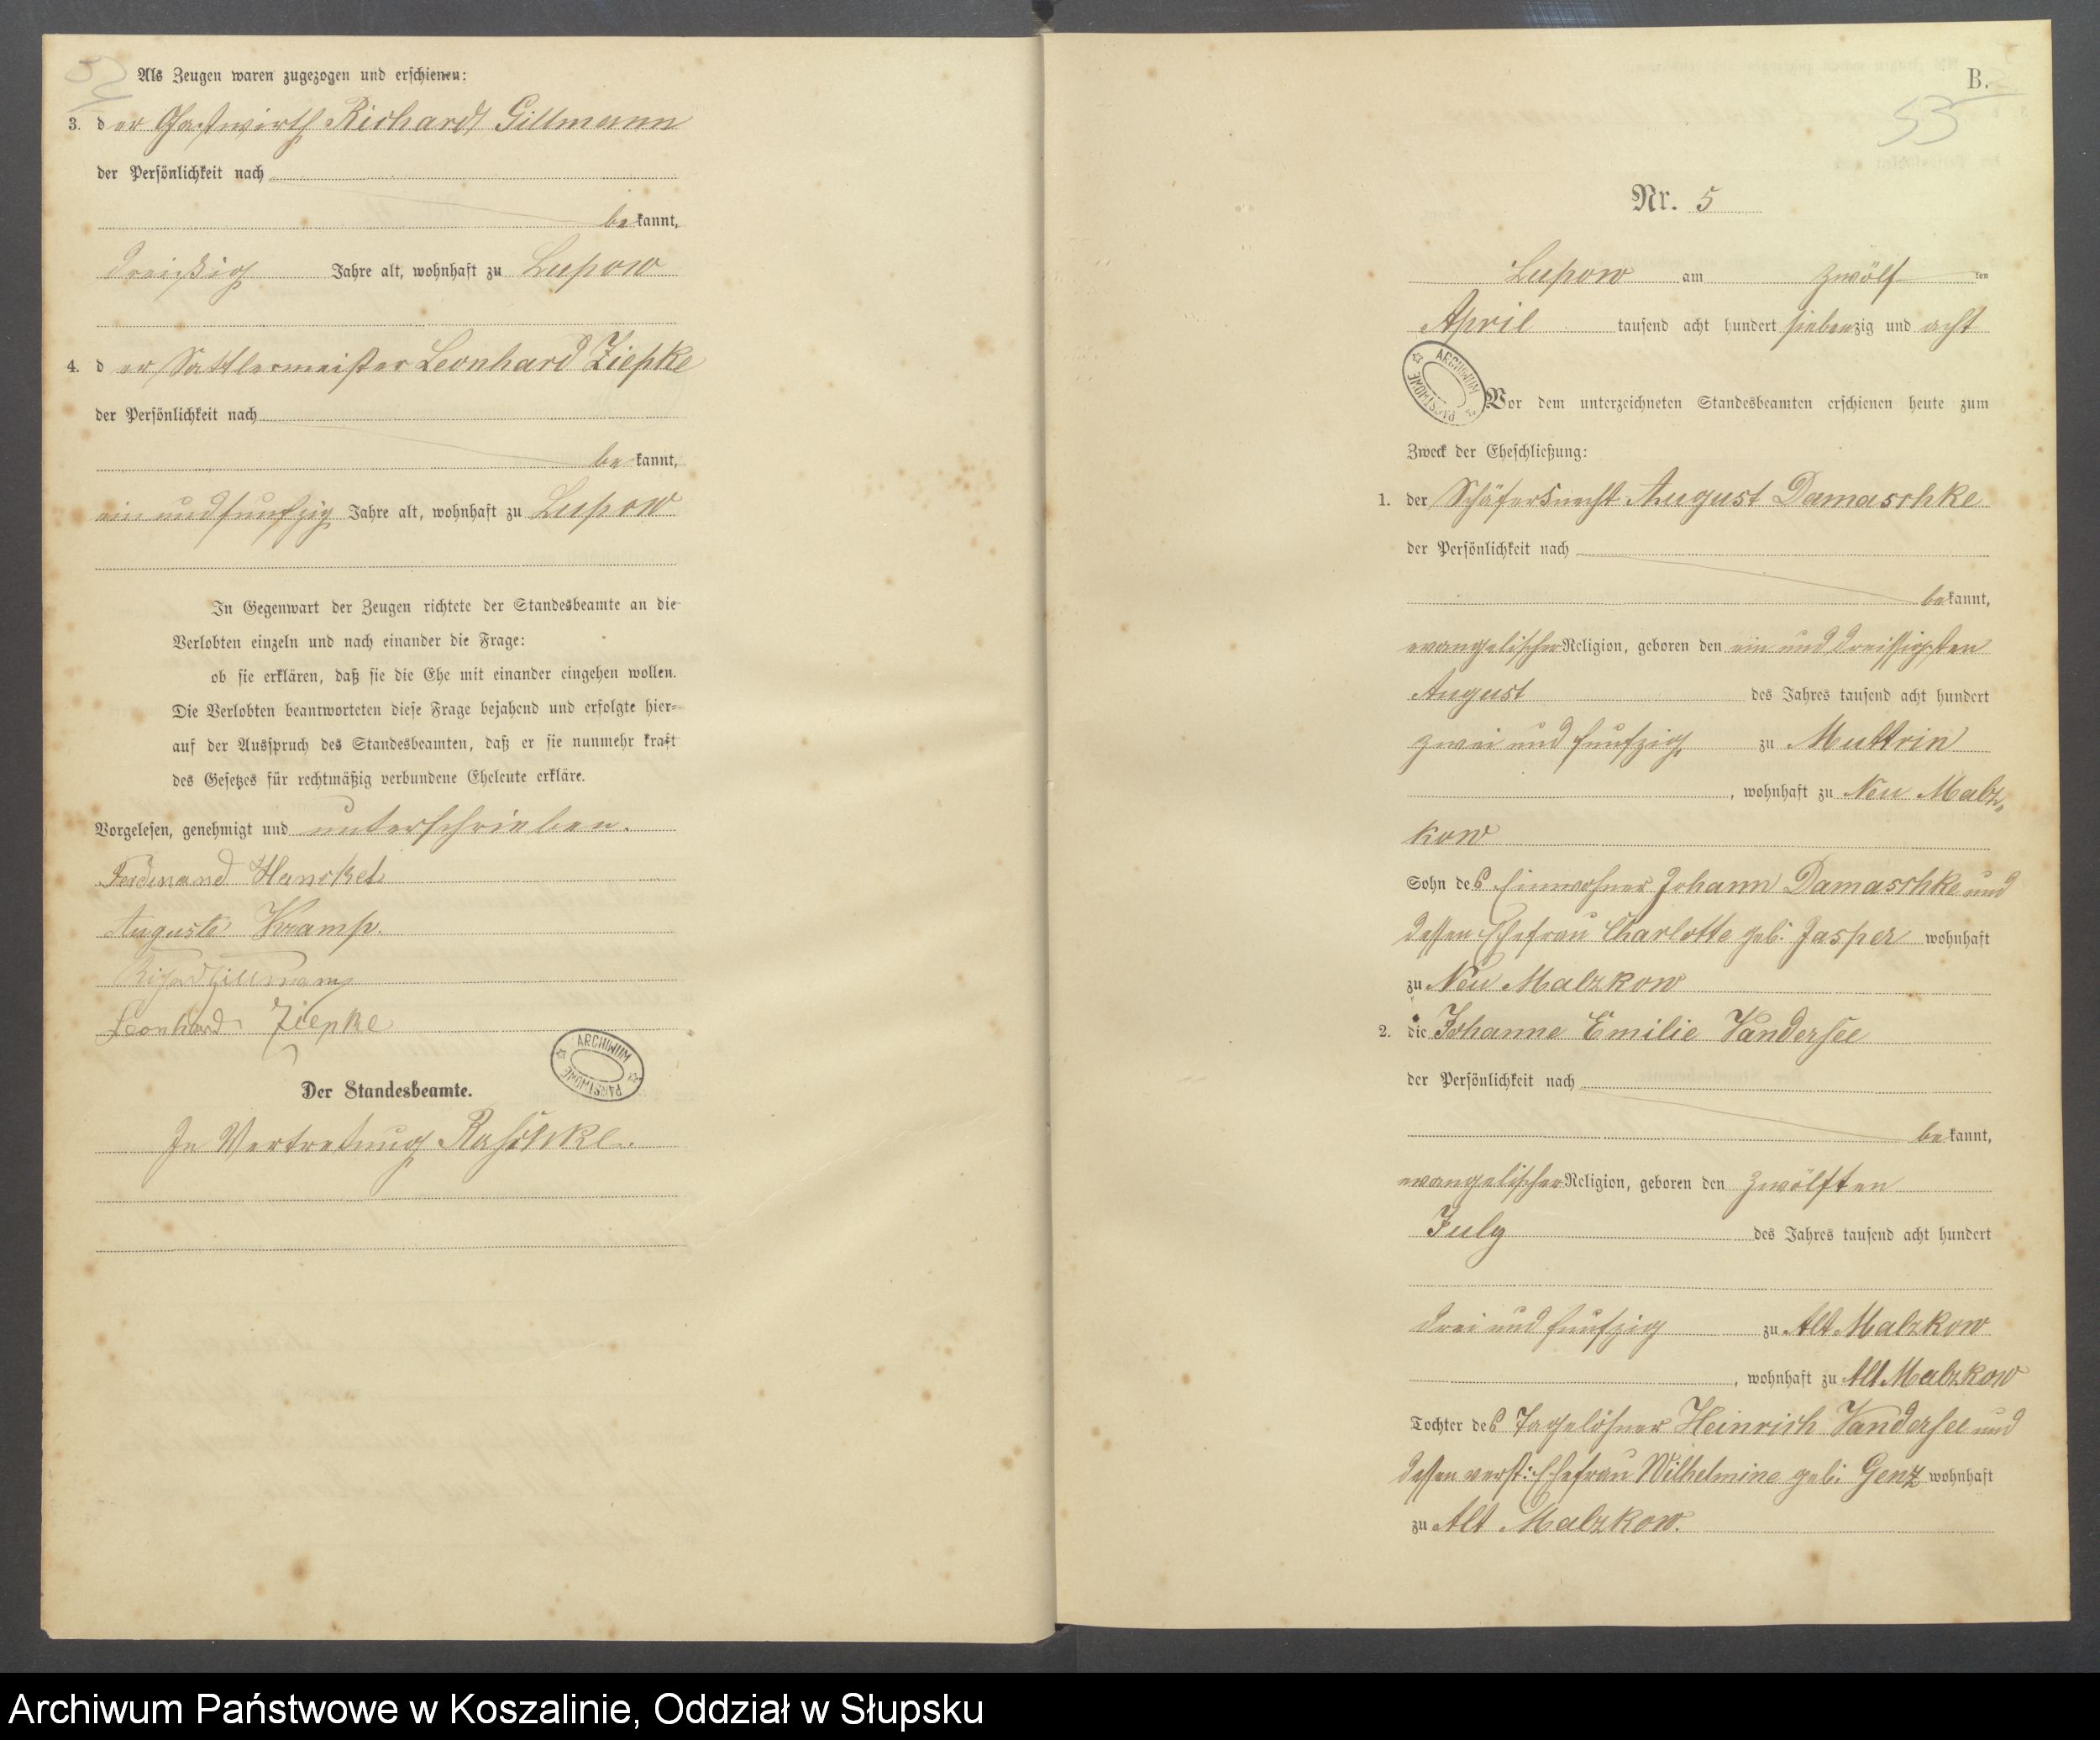 52
Als Zeugen waren zugezogen und erschienen:
3. der Gastwirth Richard Gillmann
der Persönlichkeit nach
bekannt,
dreißig Jahre alt, wohnhaft zu Lupow
4. der Sattlermeister Leonhard Ziepke
der Persönlichkeit nach
bekannt,
ein und funfzig Jahre alt, wohnhaft zu Lupow
In Gegenwart der Zeugen richtete der Standesbeamte an die
Verlobten einzeln und nach einander die Frage:
ob sie erklären, daß sie die Ehe mit einander eingehen wollen.
Die Verlobten beantworteten diese Frage bejahend und erfolgte hier-
auf der Ausspruch des Standesbeamten, daß er sie nunmehr kraft
des Gesetzes für rechtmäßig verbundene Eheleute erkläre.
Vorgelesen, genehmigt und unterschrieben.
Ferdinand Hanckel
Auguste Kramp.
Richard Gillmann
Leonhard Ziepke
ARCHIWUM PAŃSTWOWE
Der Standesbeamte.
In Vertretung Raschke.
B.
53
Nr. 5
Lupow am zwölften
April tausend acht hundert siebenzig und acht
ARCHIWUM PAŃSTWOWE
Vor dem unterzeichneten Standesbeamten erschienen heute zum
Zweck der Eheschließung:
1. der Schäferknecht August Damaschke
der Persönlichkeit nach
bekannt,
evangelischer Religion, geboren den ein und dreissigsten
August des Jahres tausend acht hundert
zwei und funfzig zu Muttrin
, wohnhaft zu Neu Malz-
kow
Sohn des Einwohner Johann Damaschke und
dessen Ehefrau Charlotte geb. Jasper wohnhaft
zu Neu Malzkow
2. die Johanne Emilie Vandersee
der Persönlichkeit nach
bekannt,
evangelischer Religion, geboren den zwölften
July des Jahres tausend acht hundert
drei und funfzig zu Alt Malzkow
, wohnhaft zu Alt Malzkow
Tochter des Tagelöhner Heinrich Vandersee und
dessen verst: Ehefrau Wilhelmine geb: Genz wohnhaft
zu Alt Malzkow.
Archiwum Państwowe w Koszalinie, Oddział w Słupsku